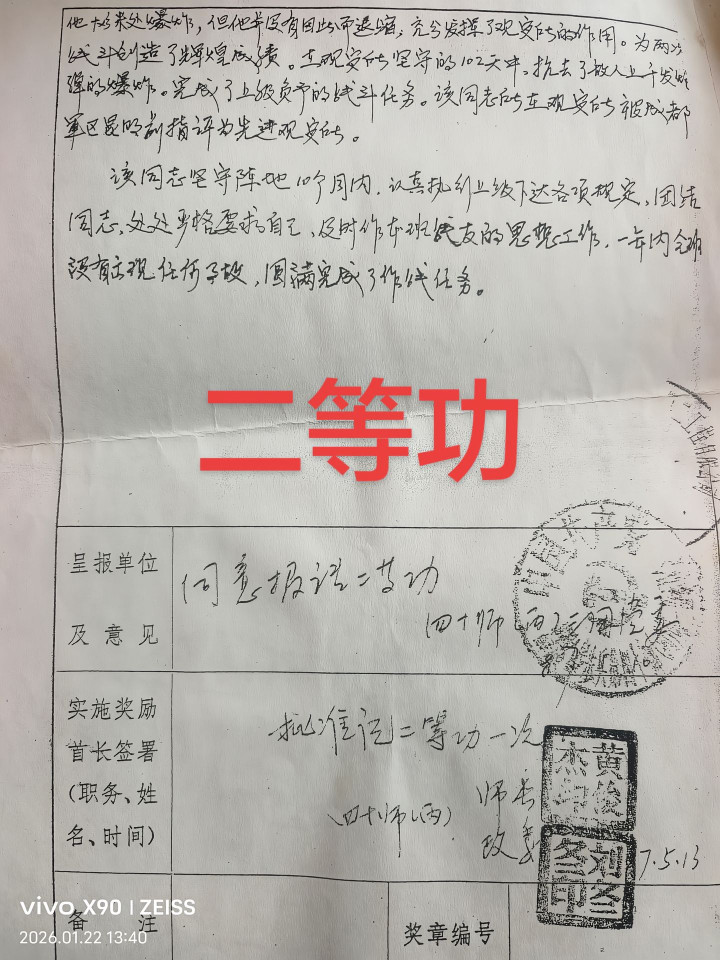 他十多米处爆炸，但他并没有因此而退缩，充分发挥了观察所的作用。为两次
战斗创造了辉煌成绩。在观察所坚守的102天中，抗击了敌人上千发炮
弹的爆炸。完成了上级负予的战斗任务。该同志所在观察所被成都
军区昆明前指评为先进观察所。
该同志坚守阵地10个月内，认真执行上级下达各项规定，团结
同志，处处严格要求自己，及时作本班战友的思想工作，一年内全班
没有出现任何事故，圆满完成了作战任务。
二等功
呈报单位
及意见
同意报请二等功
四十师(西)
实施奖励
首长签署
(职务、姓
名、时间)
批准记二等功一次
四十师(西) 师长
政委
黄俊杰印
7.5.13
备注
奖章编号
vivo X90 | ZEISS
2026.01.22 13:40